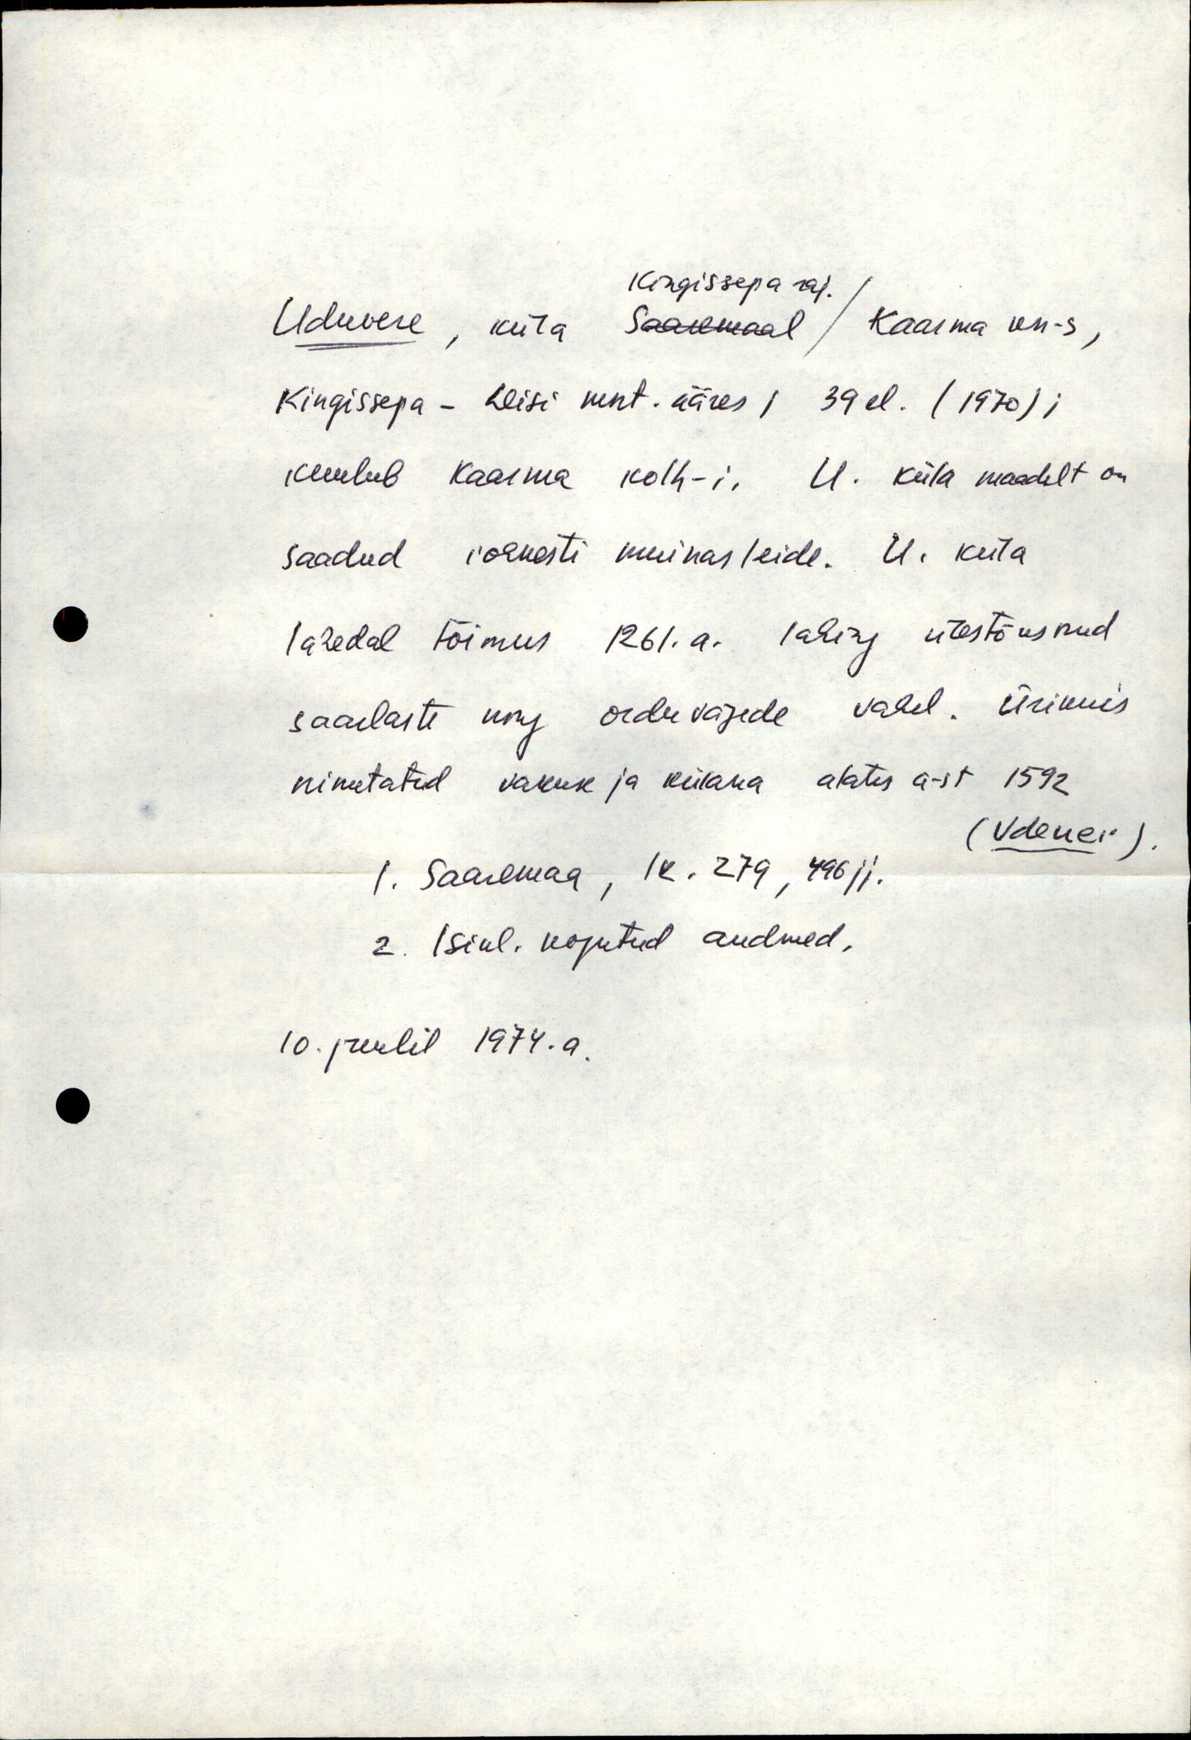 Kingissepa raj.
Uduvere, küla Saaremaal / Kaarma kn-s,
Kingissepa - Leisi mnt. ääres; 39 el. (1970);
kuulub Kaarma kolh-i. U. küla maadelt on
saadud rohkesti muinasleide. U. küla
lähedal toimus 1261. a. lahing ülestõusnud
saarlaste ning orduvägede vahel. Ürikuis
nimetatud vakuse ja külana alates a-st 1592
(Vdeuer).
1. Saaremaa, lk. 279, 496 jj.
2. Isikl. kogutud andmed.
10. juulil 1974. a.